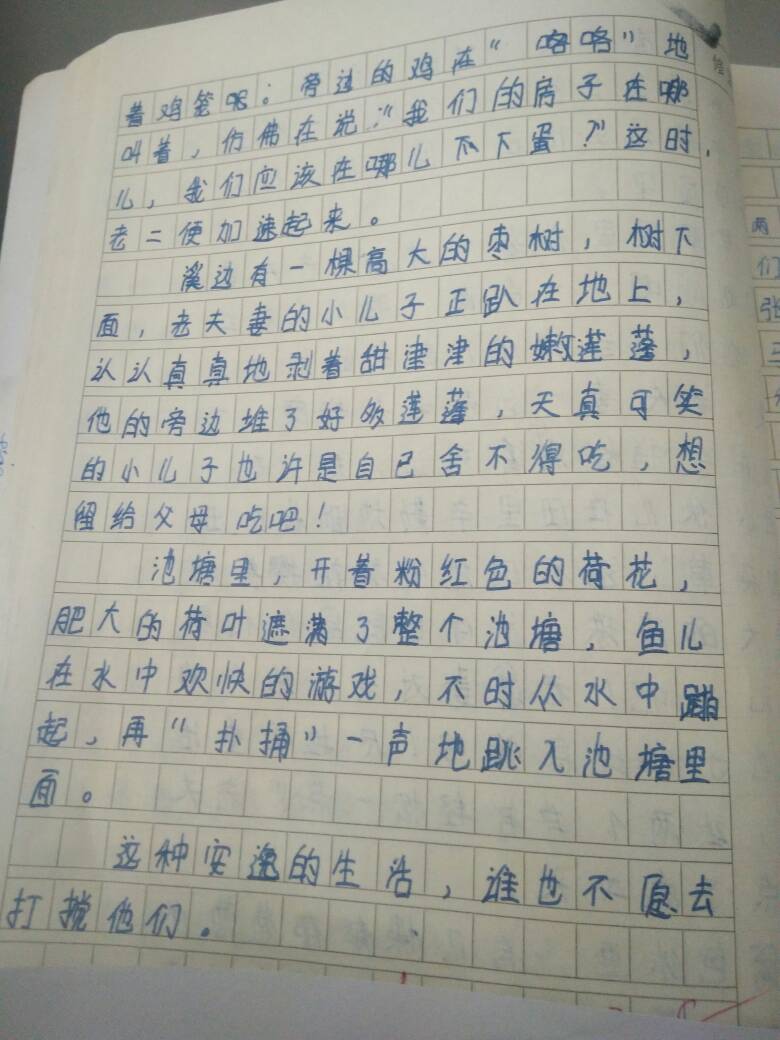 着鸡笼呢；旁边的鸡在“咯咯”地
叫着，仿佛在说：“我们的房子在哪
儿，我们应该在哪儿不下蛋？”这时，
老二便加速起来。
溪边有一棵高大的枣树，树下
面，老夫妻的小儿子正趴在地上，
认认真真地剥着甜津津的嫩莲蓬，
他的旁边堆了好多莲蓬，天真可笑
的小儿子也许是自己舍不得吃，想
留给父母吃吧！
池塘里，开着粉红色的荷花，
肥大的荷叶遮满了整个池塘，鱼儿
在水中欢快的游戏，不时从水中蹦
起，再“扑捅”一声地跳入池塘里
面。
这种安逸的生活，谁也不愿去
打搅他们。